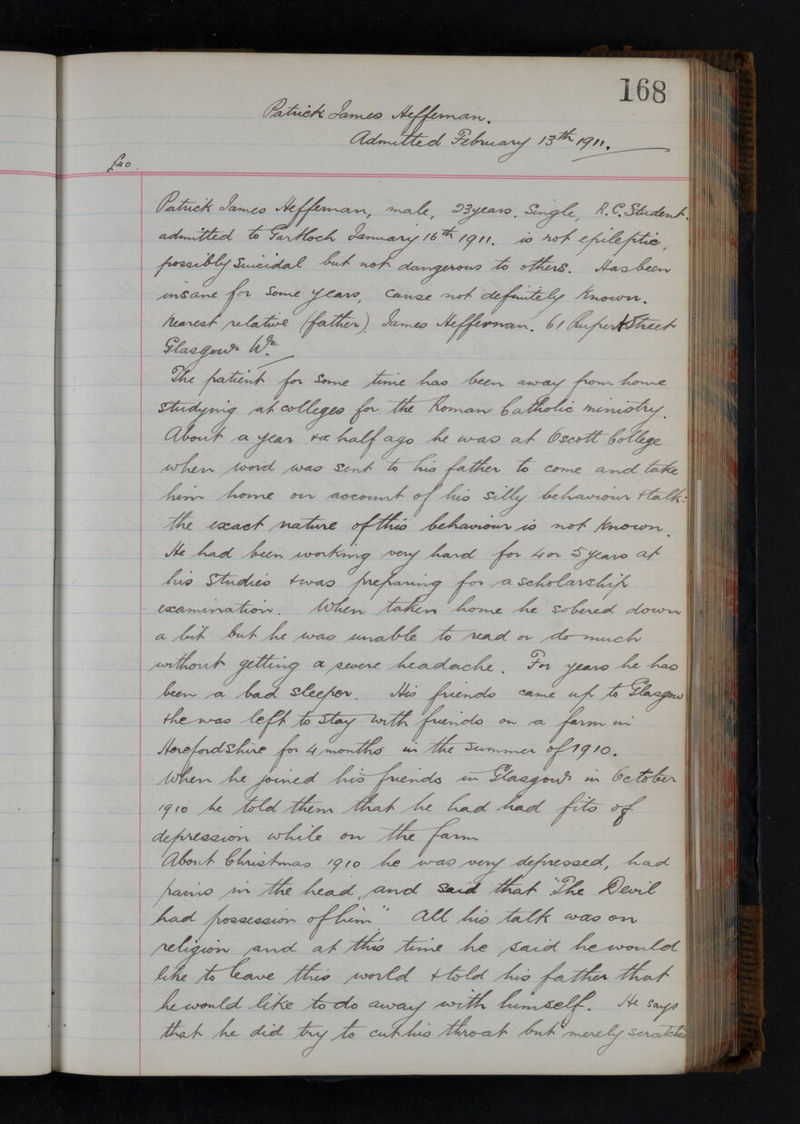 168
Patrick James Heffernan.
Admitted February 13th 1911.
Patrick James Heffernan, male, 23 years. Single, R.C. Student.
admitted to Gartloch January 16th 1911. is not epileptic,
possibly suicidal but not dangerous to others. Has been
insane for some years, cause not definitely known.
Nearest relative (father). James Heffernan. 61 Rupert Street
Glasgow W.
The patient for some time has been away from home
studying at colleges for the Roman Catholic ministry.
About a year & a half ago he was at Oscott College
when word was sent to his father to come and take
him home on account of his silly behaviour & talk:
the exact nature of this behaviour is not known.
He had been working very hard for 4 or 5 years at
his studies & was preparing for a scholarship
examination. When taken home he sobered down
a bit but he was unable to read or do much
without getting a severe headache. For years he has
been a bad sleeper. His friends came up to Glasgow
& he was left to stay with friends on a farm in
Herefordshire for 4 months in the summer of 1910.
When he joined his friends in Glasgow in October
1910 he told them that he had had fits of
depression while on the farm
About Christmas 1910 he was very depressed, had
pains in the head, and said that "The Devil
had possession of him" All his talk was on
religion and at this time he said he would
like to leave this world & told his father that
he would like to do away with himself. He says
that he did try to cut his throat but merely scratched